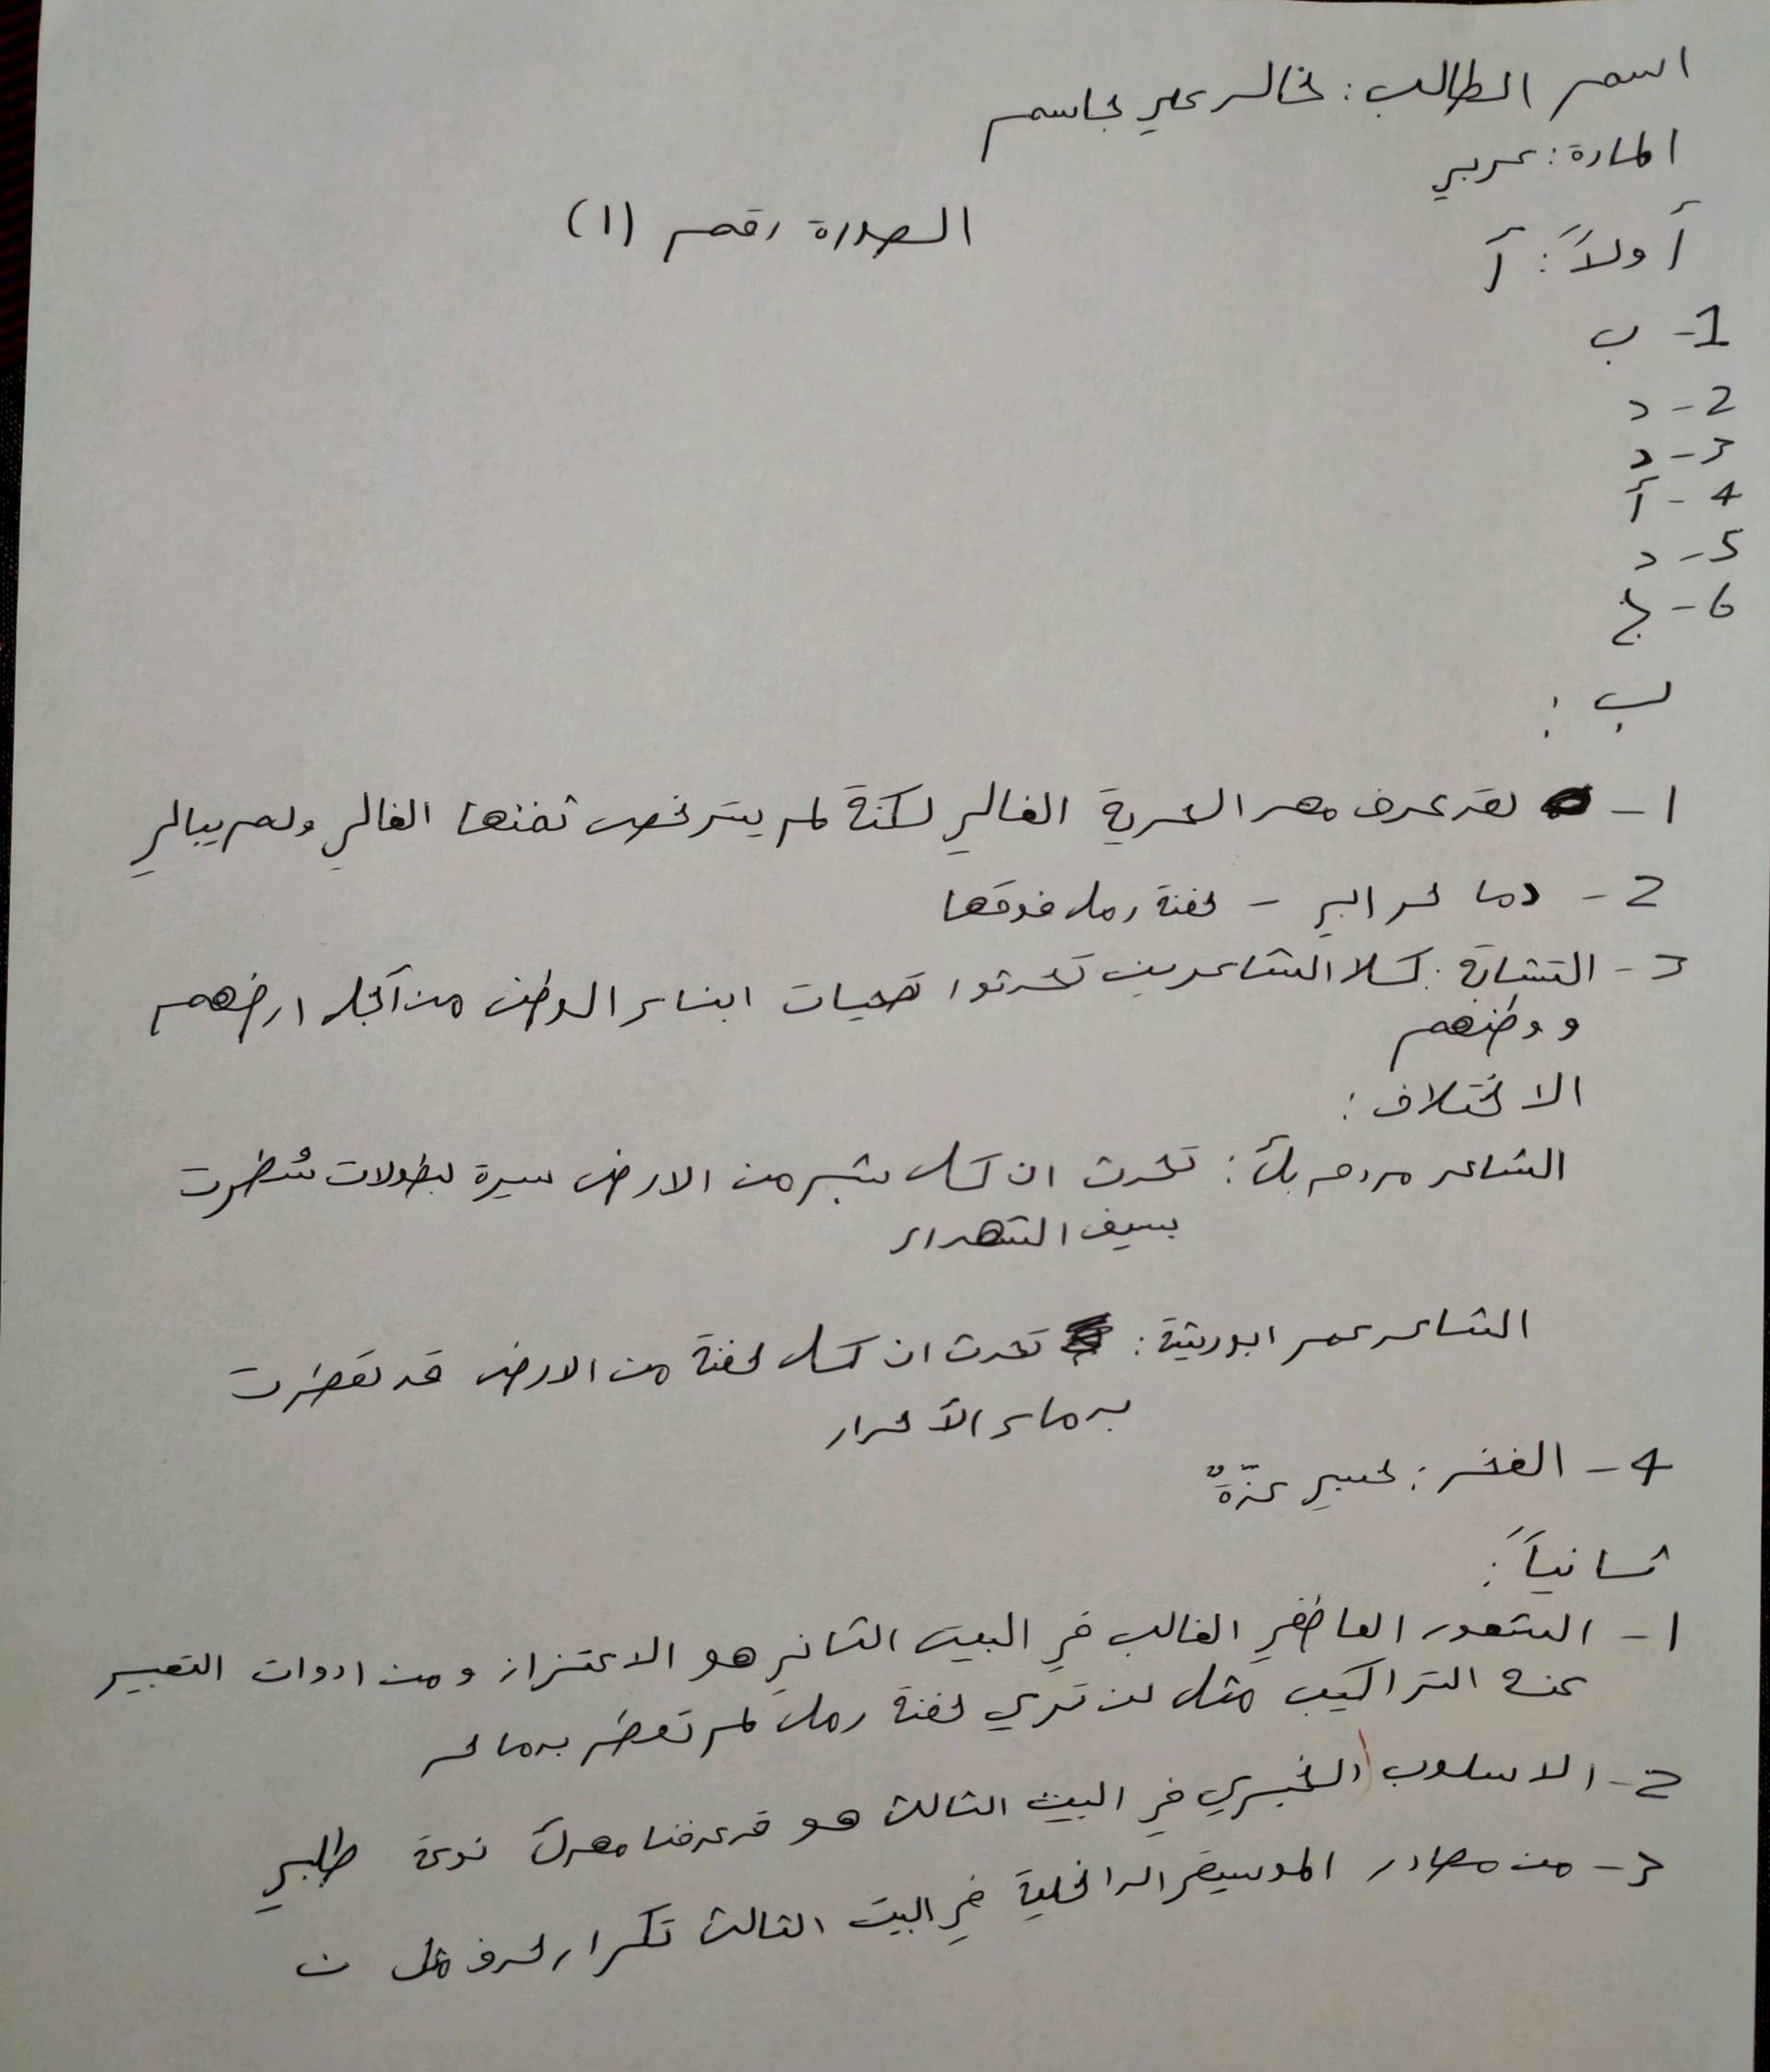 اسم الطالب: خالد علي جاسم
المادة: عربي
الصورة رقم (1)
أولاً: أ
1- ب
2- د
3- د
4- أ
5- د
6- ج
ب:
1- لقد عرف مهر الحرية الغالي لكنة لم يسترخص ثمنها الغالي ولم يبالي
2- دما حر ابي - حفنة رمل فوقها
3- التشابة: كلا الشاعرين تحدثوا تضحيات ابناء الوطن من أجل ارضهم
و وطنهم
الاختلاف:
الشاعر مردم بك: تحدث ان كل شبر من الارض سيرة لبطولات سُطرت
بسيف الشهداء
الشاعر عمر ابوريشة: تحدث ان كل حفنة من الارض قد تعطرت
بدماء الأحرار
4- الفخر: حسبي عزّةٌ
ثانياً:
1- الشعور العاطفي الغالب في البيت الثاني هو الاعتزاز ومن ادوات التعبير
عنه التراكيب مثل لن تري حفنة رمل لم تعطر بدما حر
2- الاسلوب الخبري في البيت الثالث هو قد عرفنا مهرك نوعة طلبي
3- من مصادر الموسيقى الداخلية في البيت الثالث تكرار حرف مثل ن